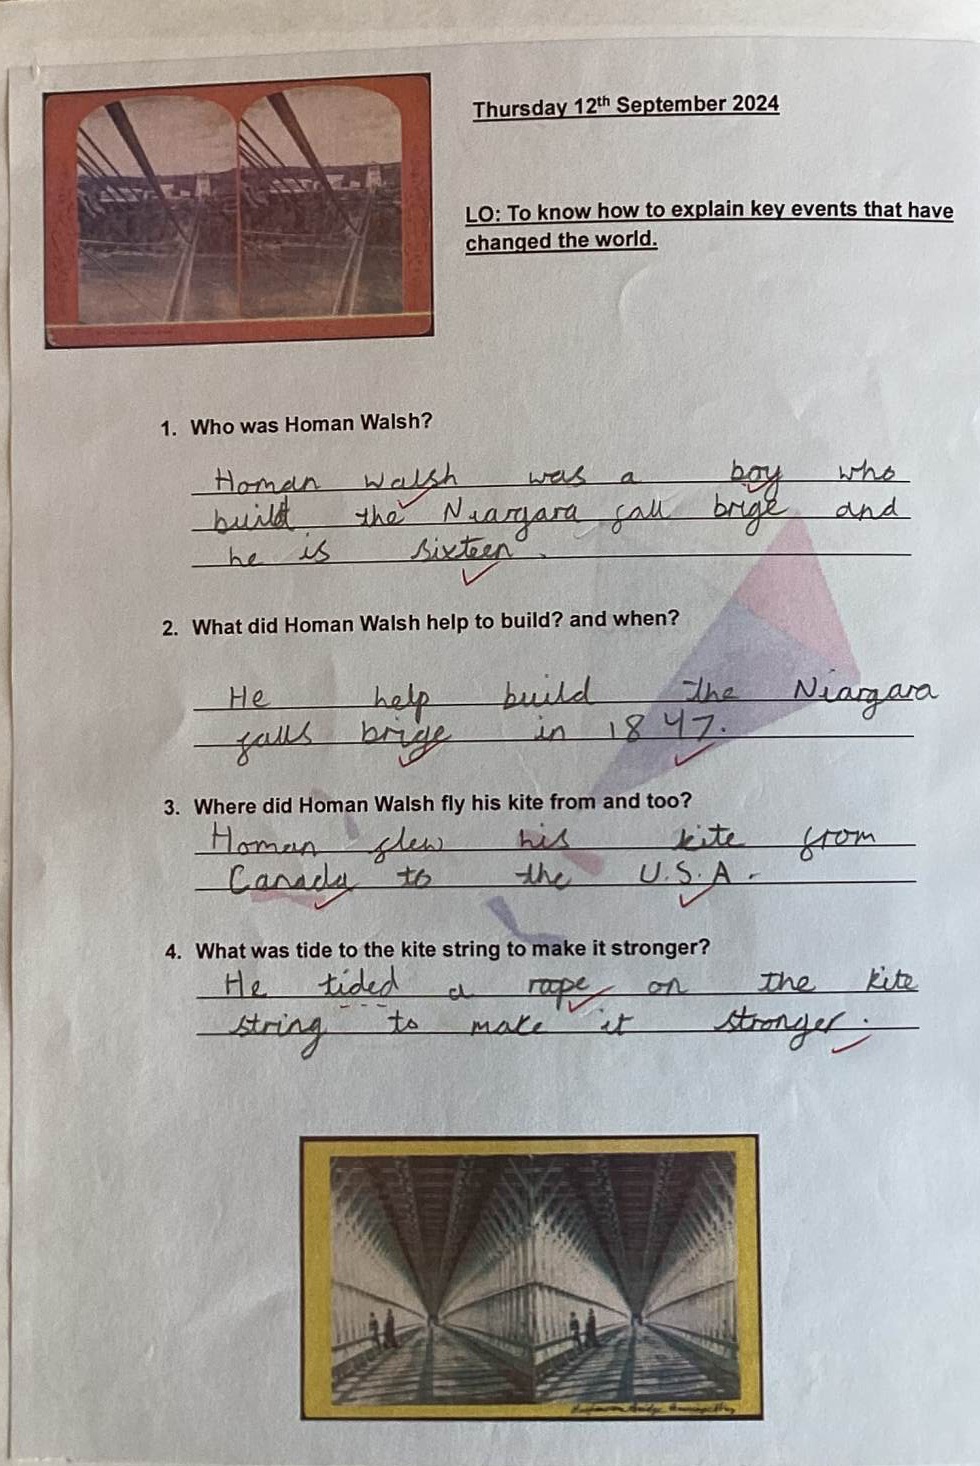 Thursday 12th September 2024
LO: To know how to explain key events that have
changed the world.
1. Who was Homan Walsh?
Homan Walsh was a boy who
build the Niargara fall brige and
he is sixteen.
2. What did Homan Walsh help to build? and when?
He help build the Niargara
falls brige in 1847.
3. Where did Homan Walsh fly his kite from and too?
Homan flew his kite from
Canada to the U.S.A.
4. What was tide to the kite string to make it stronger?
He tided a rope on the kite
string to make it stronger.